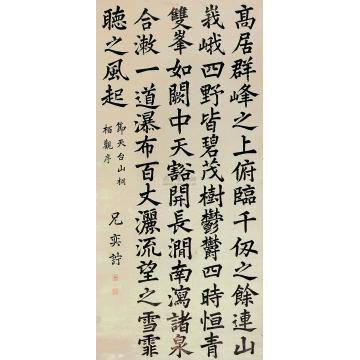 髙居群峰之上俯臨千仭之餘連山
峩峨四野皆碧茂樹鬱鬱四時恒青
雙峯如闕中天豁開長澗南瀉諸泉
合漱一道瀑布百丈灑流望之雪霏
聽之風起
節天台山桐
栢觀序
兄奕詝